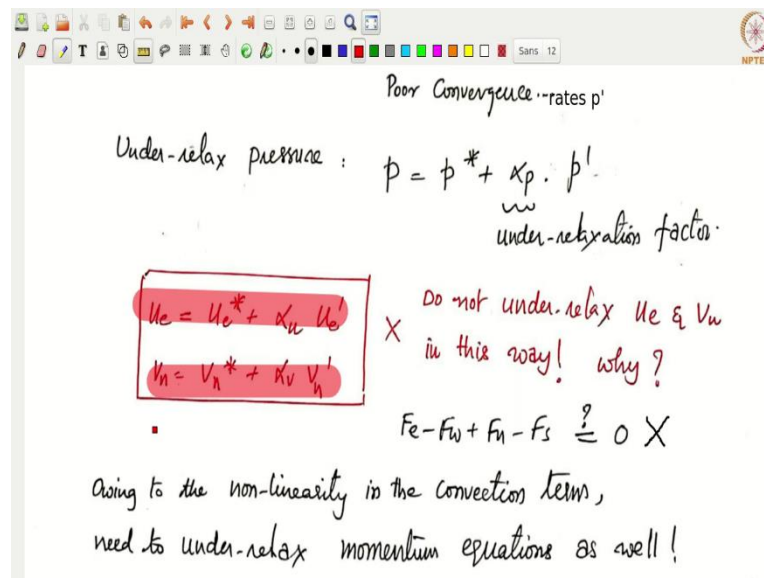 Sans 12
NPTE
Poor Convergence--rates p'
Under-relax pressure : p = p* + αp . p'
under-relaxation factor.
ue = ue* + αu ue'
vn = vn* + αv vn'
X
Do not under-relax ue & vn
in this way! why?
Fe-Fw+Fn-Fs ?= 0 X
Owing to the non-linearity in the convection terms,
need to under-relax momentum equations as well!